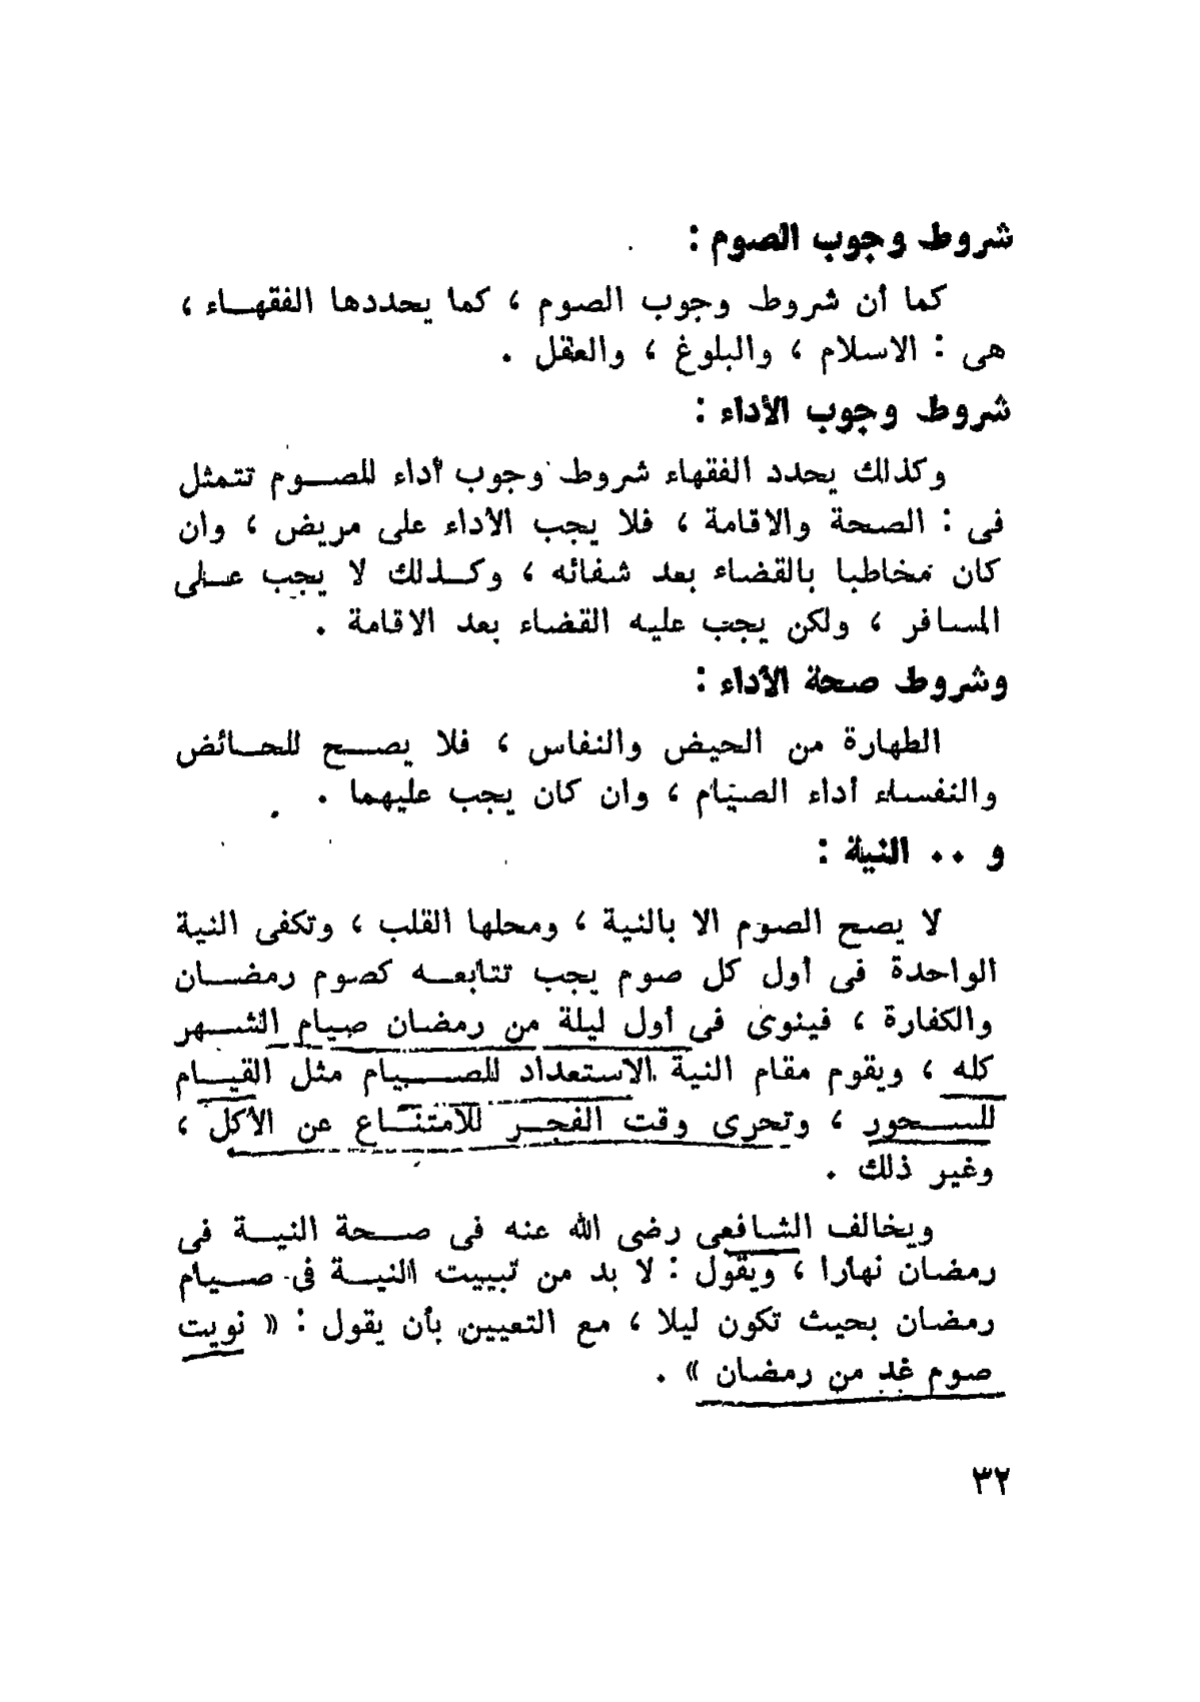 شروط وجوب الصوم :
كما أن شروط وجوب الصوم ، كما يحددها الفقهاء ،
هى : الاسلام ، والبلوغ ، والعقل .
شروط وجوب الأداء :
وكذلك يحدد الفقهاء شروط وجوب أداء للصوم تتمثل
فى : الصحة والاقامة ، فلا يجب الأداء على مريض ، وان
كان مخاطبا بالقضاء بعد شفائه ، وكذلك لا يجب على
المسافر ، ولكن يجب عليه القضاء بعد الاقامة .
وشروط صحة الأداء :
الطهارة من الحيض والنفاس ، فلا يصح للحائض
والنفساء أداء الصيام ، وان كان يجب عليهما .
و .. النية :
لا يصح الصوم الا بالنية ، ومحلها القلب ، وتكفى النية
الواحدة فى أول كل صوم يجب تتابعه كصوم رمضان
والكفارة ، فينوى فى أول ليلة من رمضان صيام الشهر
كله ، ويقوم مقام النية الاستعداد للصيام مثل القيام
للسحور ، وتحرى وقت الفجر للامتناع عن الأكل ،
وغير ذلك .
ويخالف الشافعى رضى الله عنه فى صحة النية فى
رمضان نهارا ، ويقول : لا بد من تبييت النية فى صيام
رمضان بحيث تكون ليلا ، مع التعيين بأن يقول : « نويت
صوم غد من رمضان » .
٣٢